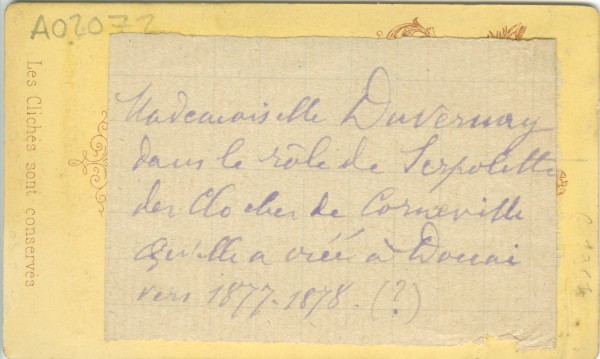 A02072
Les Clichés sont conservés
Mademoiselle Duvernay
dans le rôle de Serpolette
des Cloches de Corneville
qu'elle a créé à Douai
vers 1877-1878. (?)